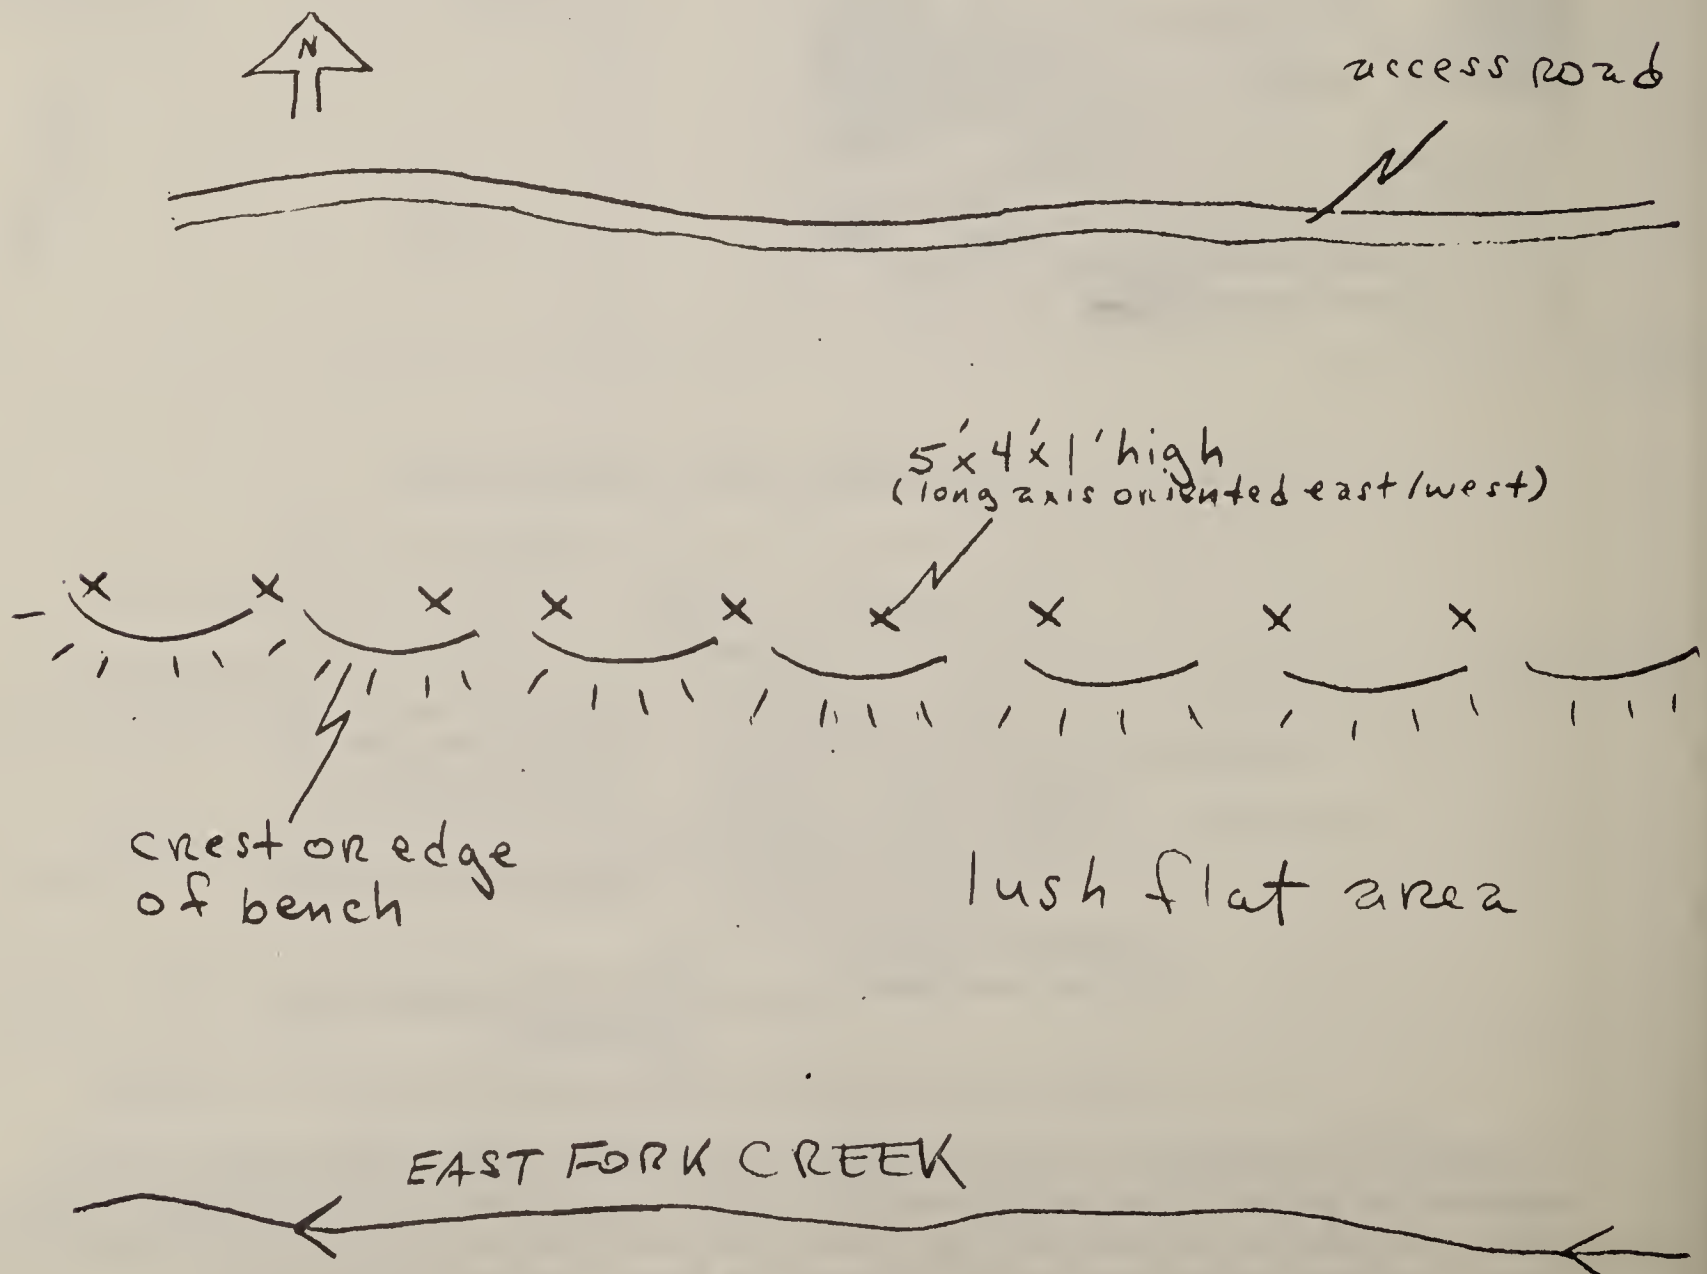 N
access road
5' x 4' x 1' high
(long axis oriented east/west)
x x x x x x x x x
crest or edge
of bench
lush flat area
EAST FORK CREEK